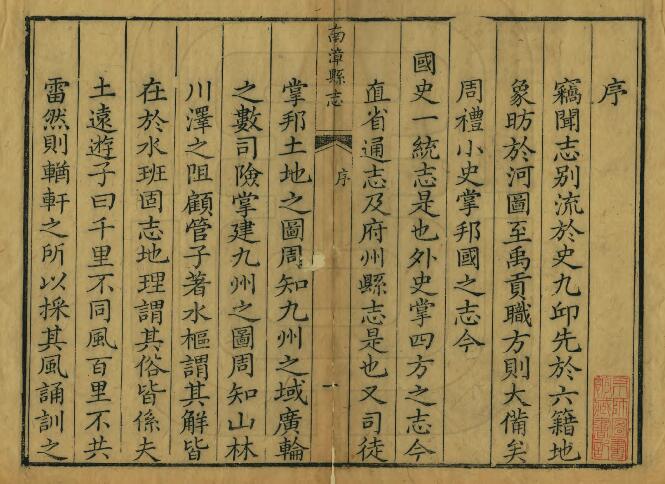 序
竊聞志别流於史九邱先於六籍地
象昉於河圖至禹貢職方則大備矣
周禮小史掌邦國之志今
國史一統志是也外史掌四方之志今
直省通志及府州縣志是也又司徒
南漳縣志
序
一
掌邦土地之圖周知九州之域廣輪
之數司險掌建九州之圖周知山林
川澤之阻顧管子著水樞謂其解皆
在於水班固志地理謂其俗皆係夫
土遠遊子曰千里不同風百里不共
雷然則輶軒之所以採其風誦訓之